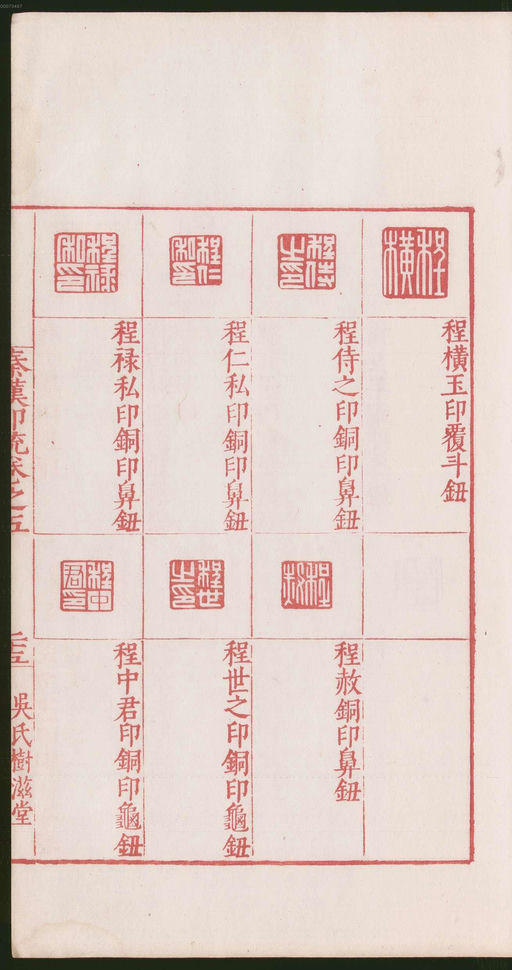 00073487
程橫
程橫玉印覆斗鈕
程侍之印
程侍之印銅印鼻鈕
程仁私印
程仁私印銅印鼻鈕
程祿私印
程祿私印銅印鼻鈕
程赦
程赦銅印鼻鈕
程世之印
程世之印銅印龜鈕
程中君印
程中君印銅印龜鈕
秦漢印統卷之五
二十三
吳氏樹滋堂